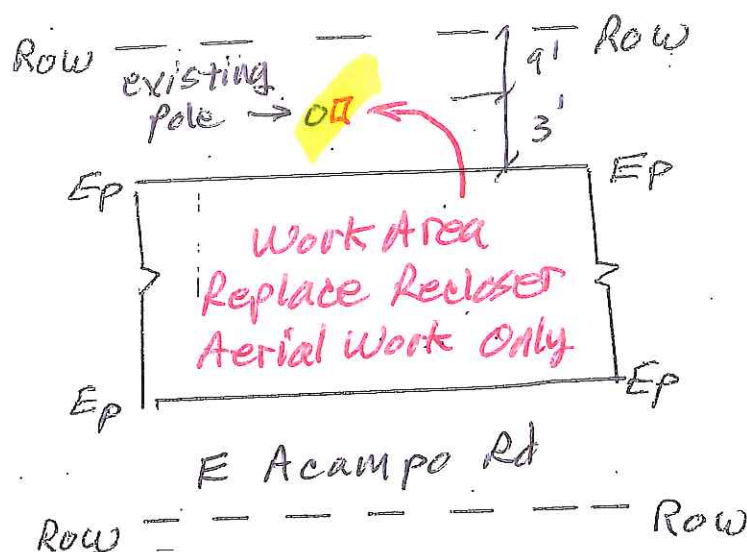 Row Row
existing
pole
9'
3'
Ep Ep
Work Area
Replace Recloser
Aerial Work Only
Ep Ep
E Acampo Rd
Row Row